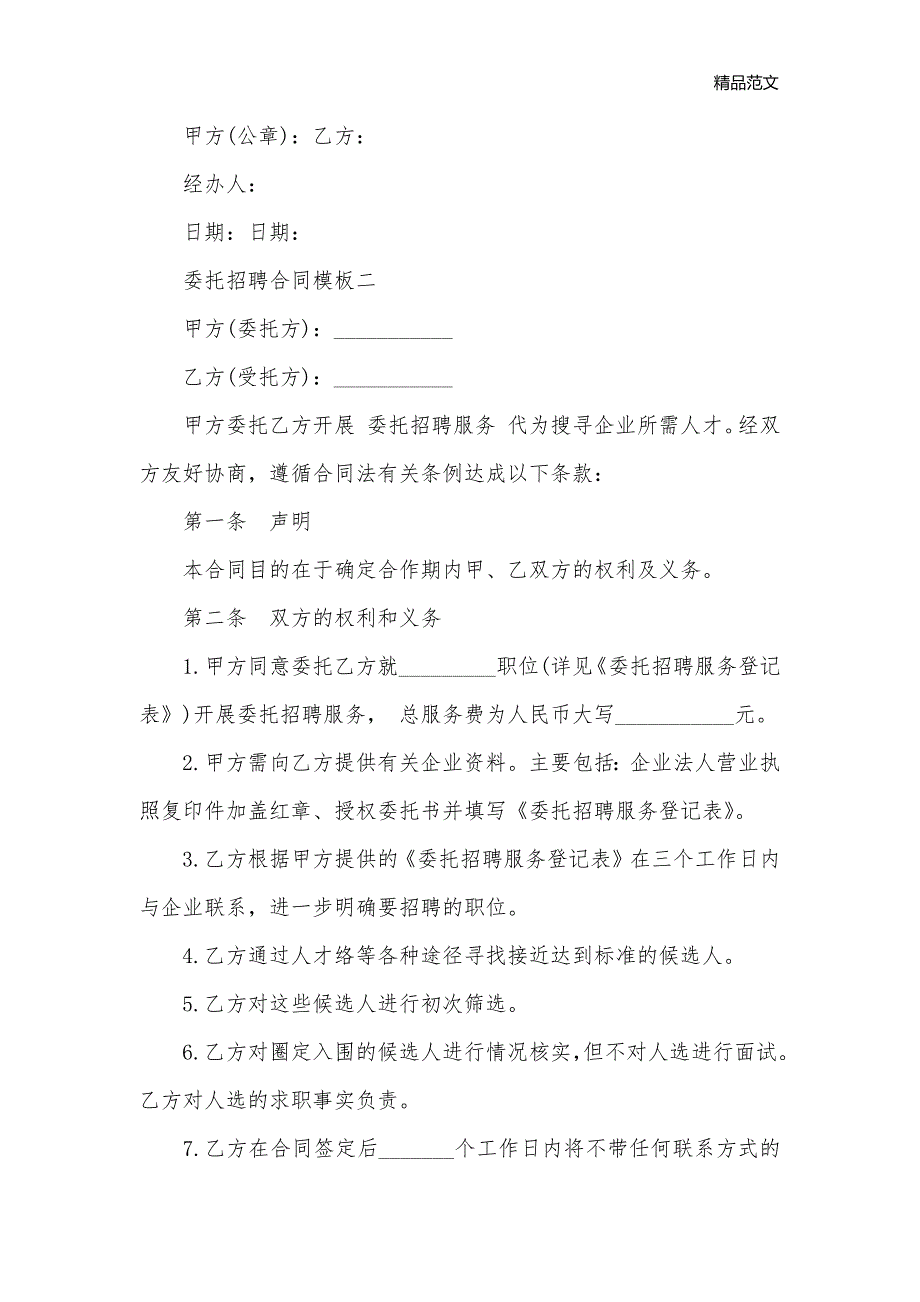 精品范文
甲方(公章)：乙方：
经办人：
日期：日期：
委托招聘合同模板二
甲方(委托方)：___________
乙方(受托方)：___________
甲方委托乙方开展 委托招聘服务 代为搜寻企业所需人才。经双
方友好协商，遵循合同法有关条例达成以下条款：
第一条　声明
本合同目的在于确定合作期内甲、乙双方的权利及义务。
第二条　双方的权利和义务
1.甲方同意委托乙方就_________职位(详见《委托招聘服务登记
表》)开展委托招聘服务， 总服务费为人民币大写___________元。
2.甲方需向乙方提供有关企业资料。主要包括：企业法人营业执
照复印件加盖红章、授权委托书并填写《委托招聘服务登记表》。
3.乙方根据甲方提供的《委托招聘服务登记表》在三个工作日内
与企业联系，进一步明确要招聘的职位。
4.乙方通过人才络等各种途径寻找接近达到标准的候选人。
5.乙方对这些候选人进行初次筛选。
6.乙方对圈定入围的候选人进行情况核实，但不对人选进行面试。
乙方对人选的求职事实负责。
7.乙方在合同签定后_______个工作日内将不带任何联系方式的